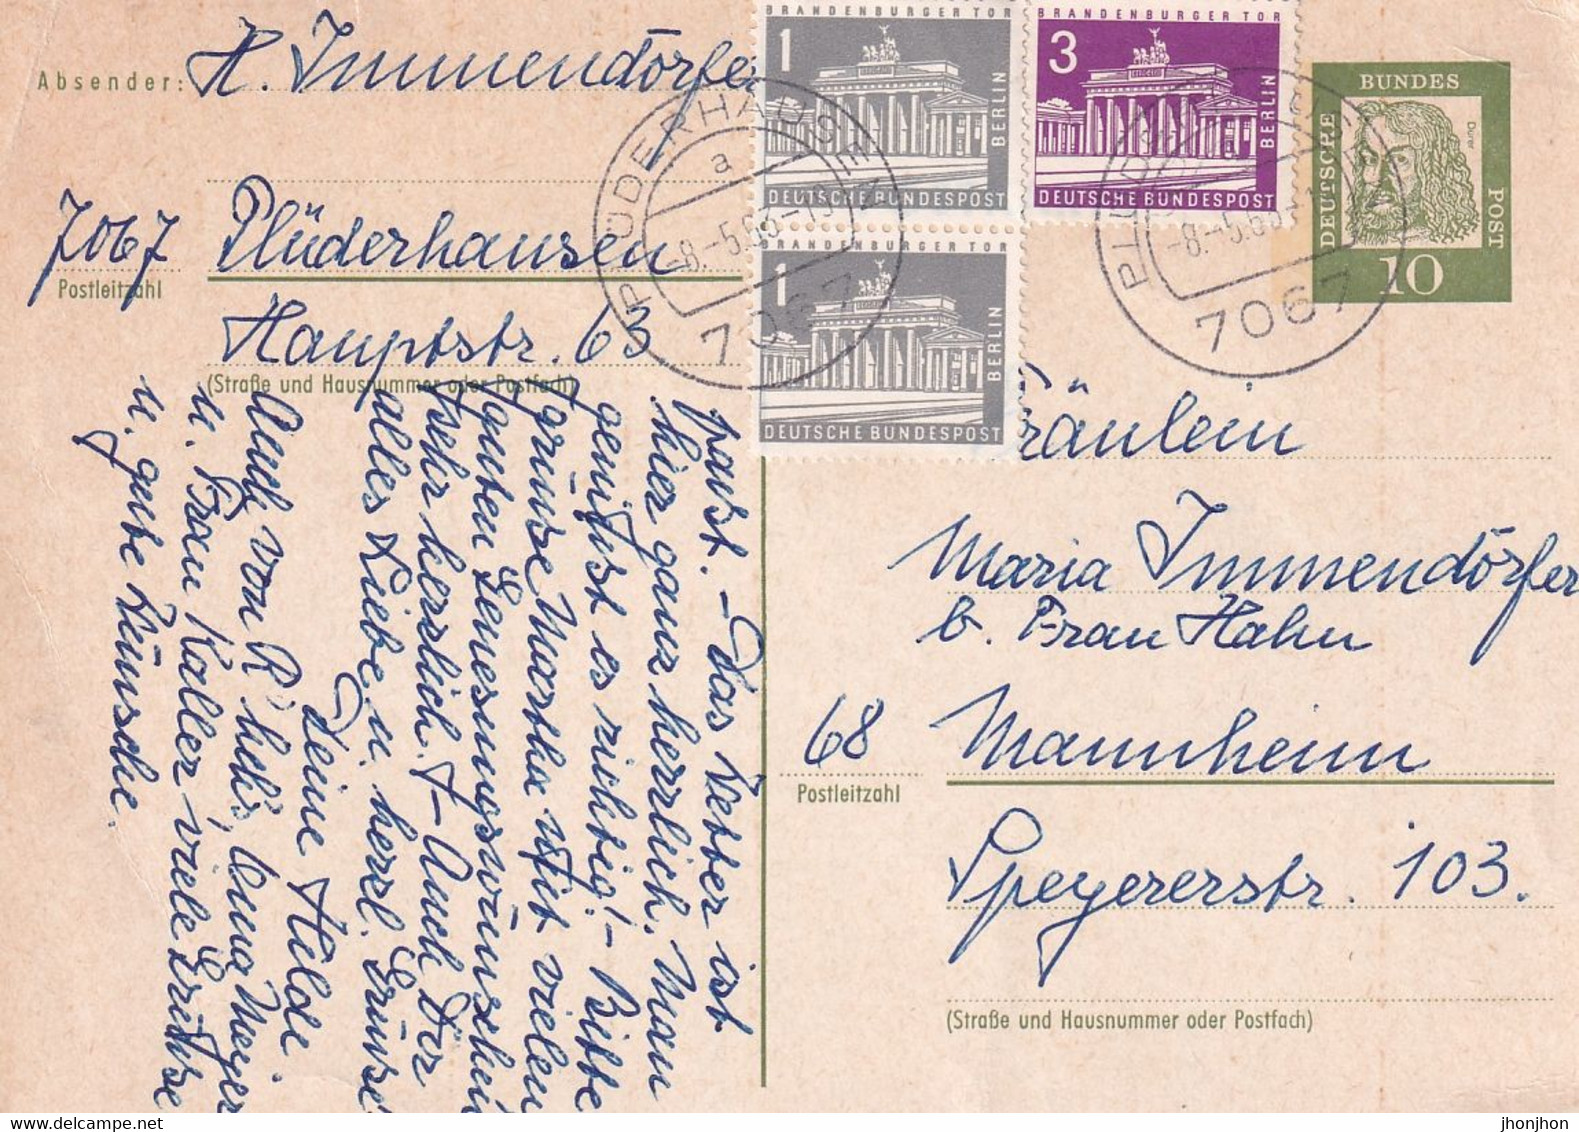 Absender: H. Immendörfer
7067 Plüderhausen
Postleitzahl
Hauptstr. 63
(Straße und Hausnummer oder Postfach)
BRANDENBURGER TOR
1
BERLIN
DEUTSCHE BUNDESPOST
BRANDENBURGER TOR
3
BERLIN
DEUTSCHE BUNDESPOST
BRANDENBURGER TOR
1
BERLIN
DEUTSCHE BUNDESPOST
DEUTSCHE
BUNDES
POST
Dürer
10
PLÜDERHAUSEN
a
-8.-5.65-
7067
-8.-5.65-
7067
Fräulein
Maria Immendörfer
b. Frau Hahn
68 Mannheim
Postleitzahl
Speyererstr. 103.
(Straße und Hausnummer oder Postfach)
passt. – Das Wetter ist
hier ganz herrlich. Man
genießt es richtig! – Bitte
grüsse Martha mit vielen
guten Genesungswünschen
sehr herzlich. – Auch Dir
alles Liebe u. herzl. Grüsse
Deine Hilde
Auch von R' Anna Meyer
u. Frau Kaller viele Grüsse
u. gute Wünsche.
jhonjhon
www.delcampe.net